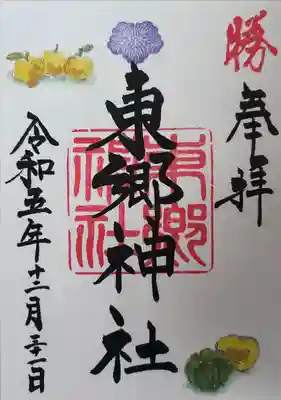 勝
奉拝
東郷神社
東郷神社
令和五年十二月二十一日